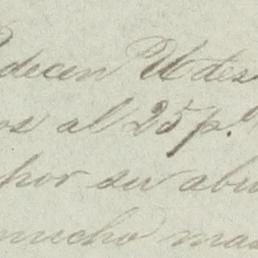 adecen Udes
os al 25 p.º
por su abu
mucho mas